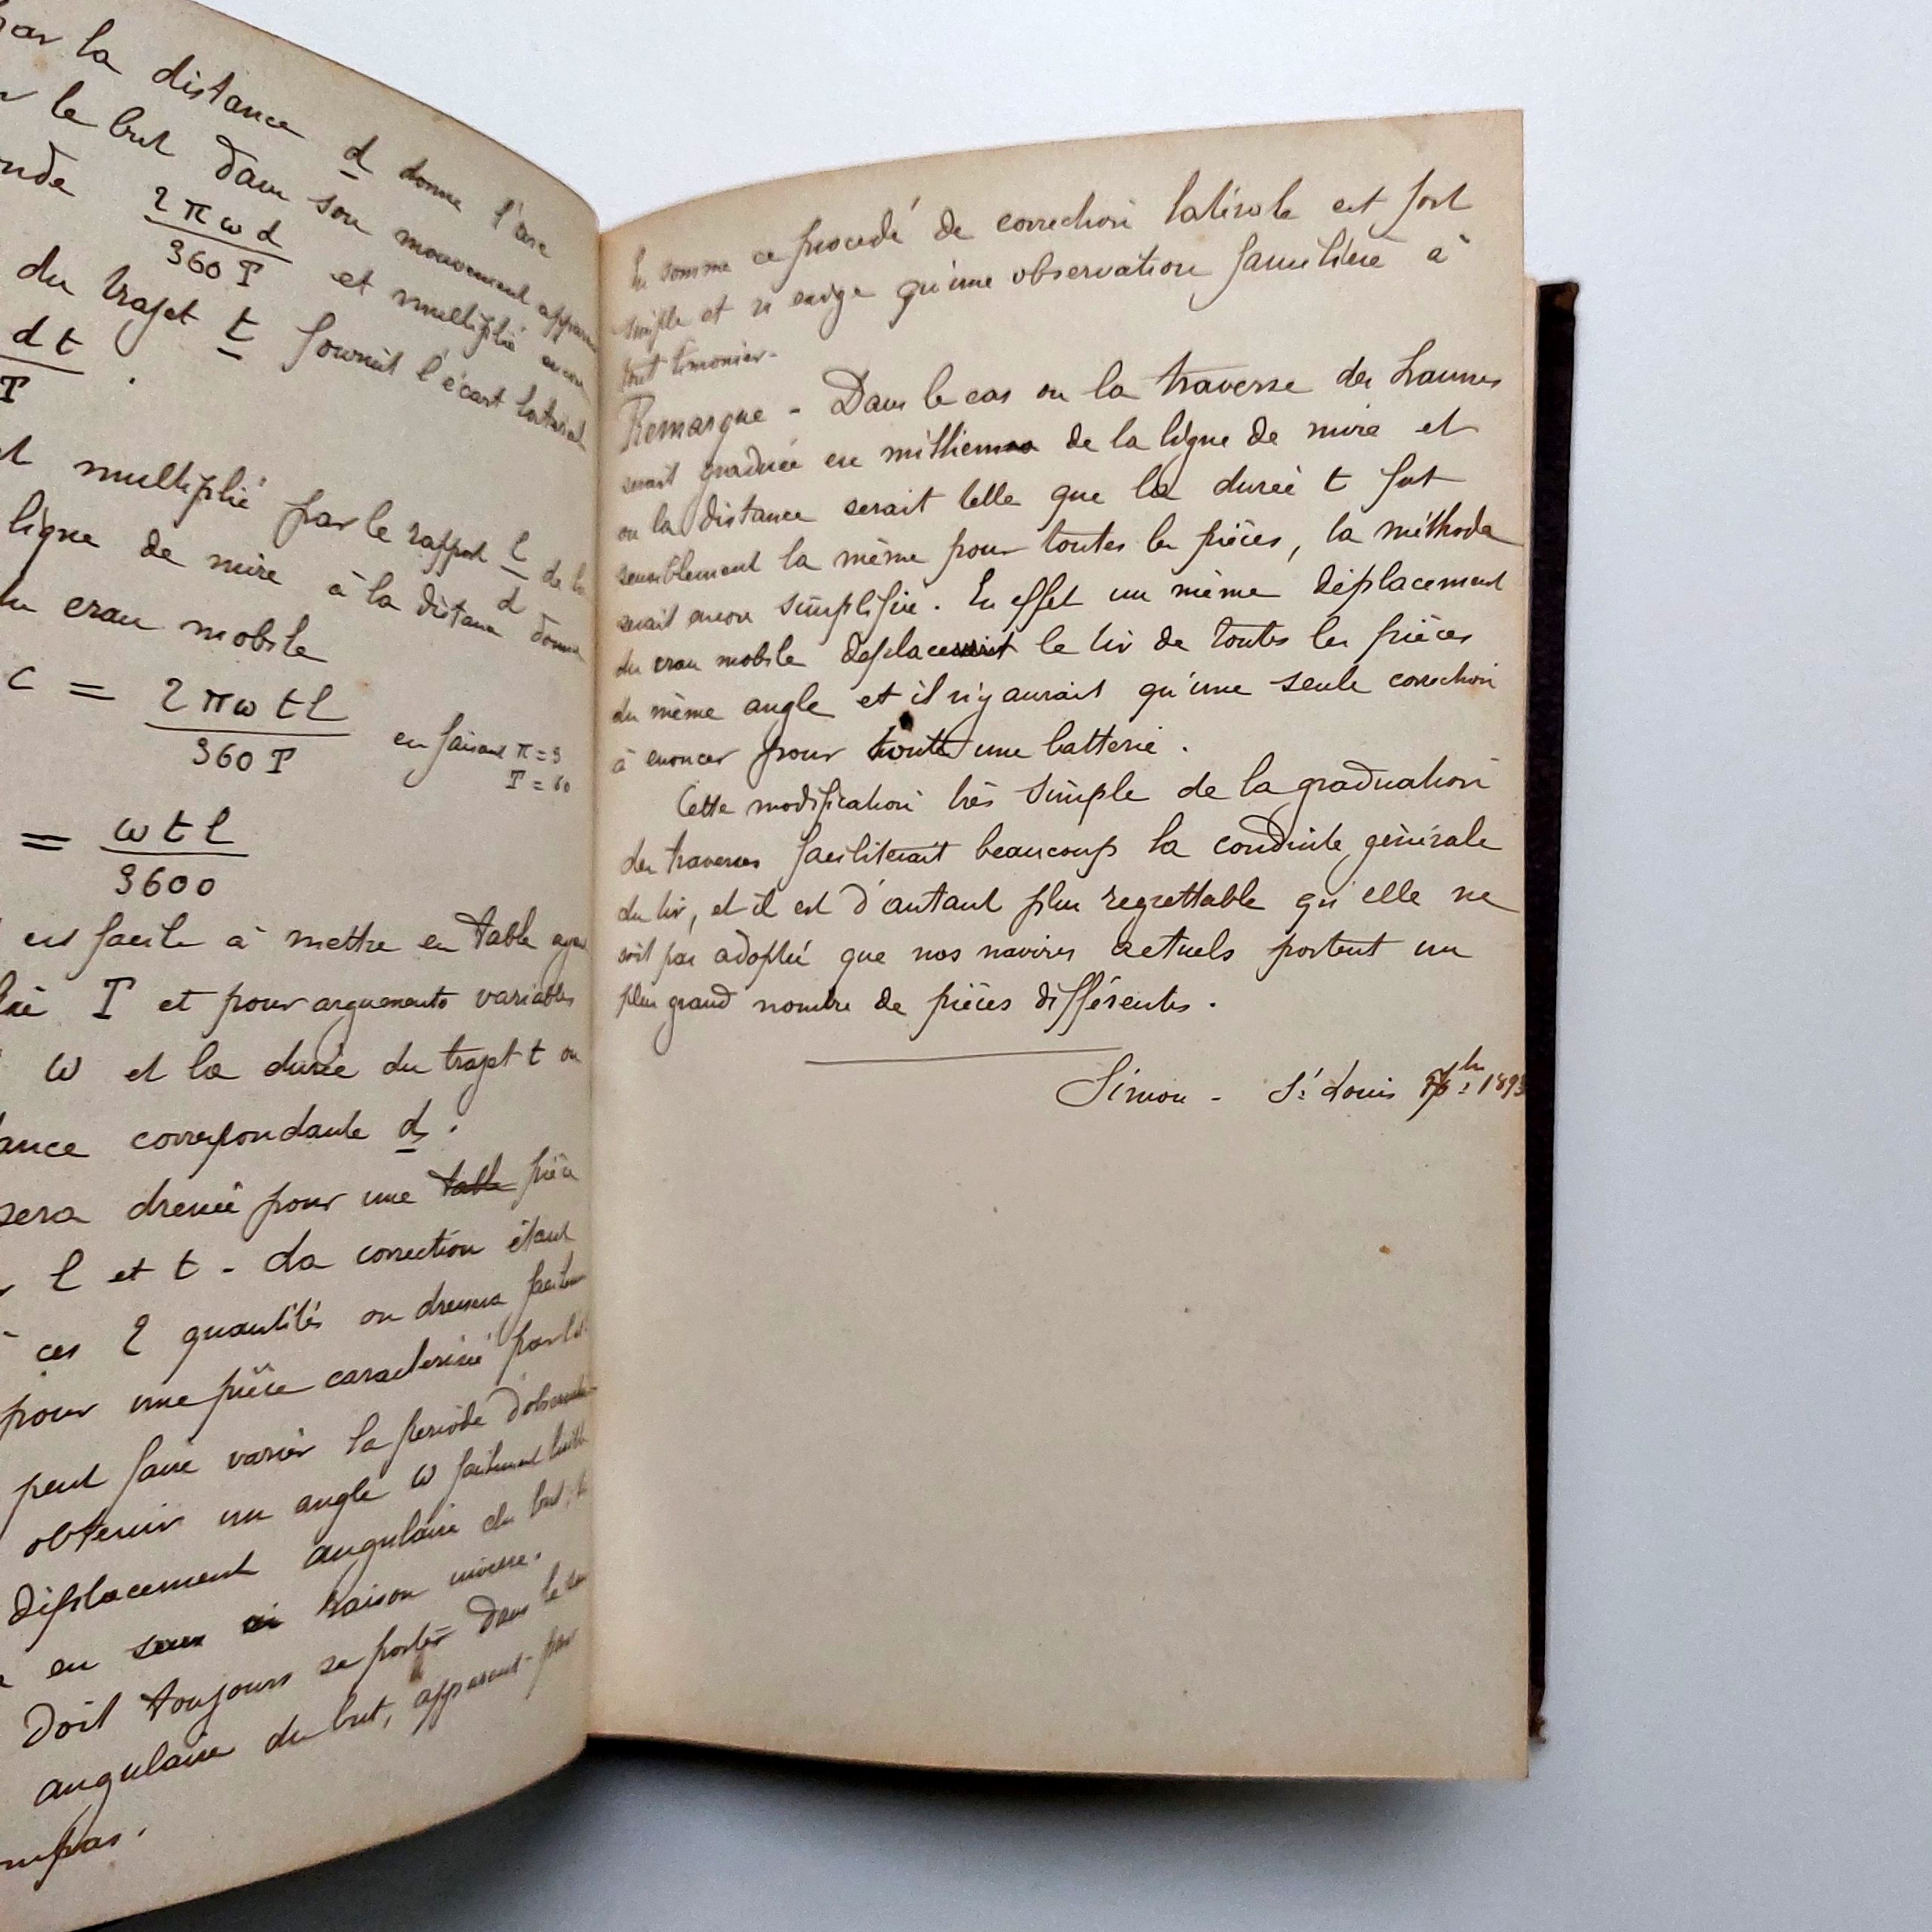 par la distance d donne l'arc
le but dans son mouvement apparent
2πωd
360 T
et multiplié encore
du trajet t fournit l'écart latéral
dt
T
multiplié par le rapport l/d de la
ligne de mire à la distance donne
cran mobile
c = 2πωtl
360 T
en faisant π = 3
T = 60
= ωtl
3600
est facile à mettre en table ayant
T et pour arguments variables
ω et la durée du trajet t ou
correspondante d.
sera dressée pour une table pièce
l et t - La correction étant
ces 2 quantités on dressera facilement
pour une pièce caractérisée par l.t.
peut faire varier la période d'observation
obtenir un angle ω facilement
déplacement angulaire du but,
en sens raison inverse.
Doit toujours se porter dans le sens
angulaire du but, apparent par
En somme ce procédé de correction latérale est fort
simple et n'exige qu'une observation familière à
tout timonier.
Remarque - Dans le cas ou la traverse des hausses
serait graduée en millièmes de la ligne de mire et
ou la distance serait telle que la durée t fut
sensiblement la même pour toutes les pièces, la méthode
serait encor simplifiée. En effet un même déplacement
du cran mobile déplacerait le tir de toutes les pièces
du même angle et il n'y aurait qu'une seule correction
à énoncer pour toute une batterie.
Cette modification très simple de la graduation
des traverses faciliterait beaucoup la conduite générale
du tir, et il est d'autant plus regrettable qu'elle ne
soit pas adoptée que nos navires actuels portent un
plus grand nombre de pièces différentes.
Simon - St Louis 1893